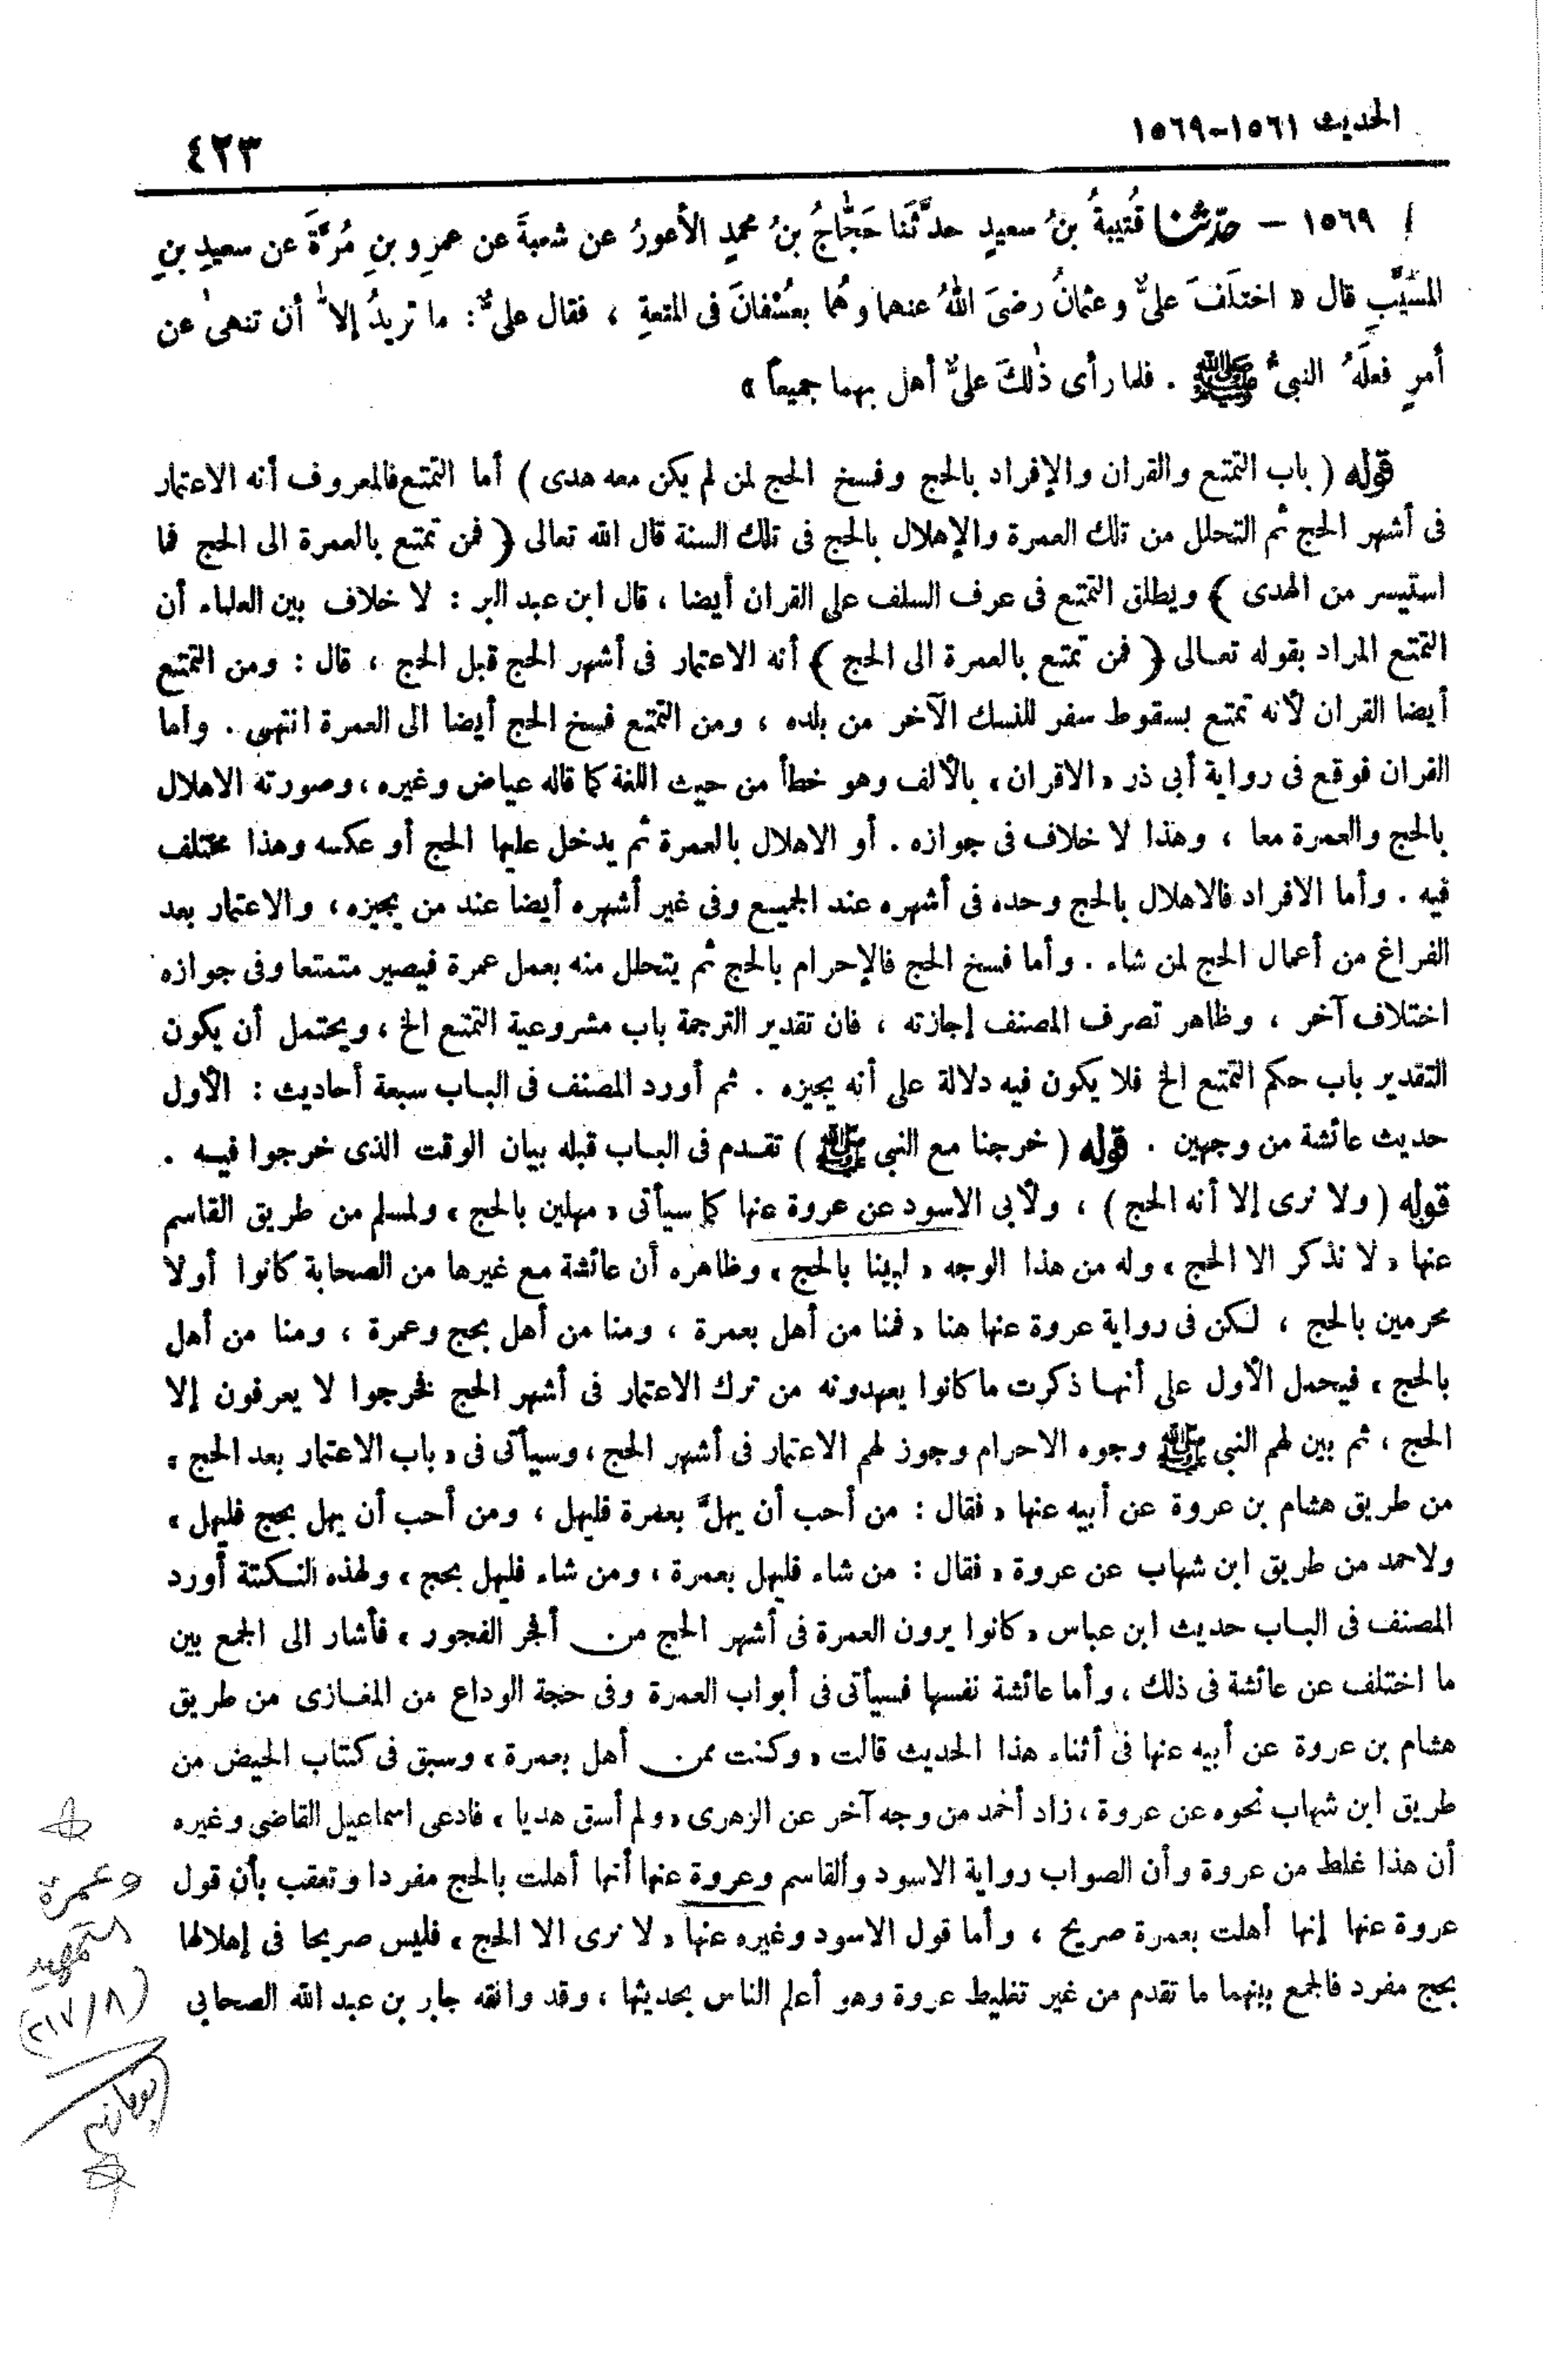 الحديث ١٥٦١-١٥٦٩
٤٢٣
١٥٦٩ - حدّثنا قُتيبةُ بنُ سعيدٍ حدَّثَنا حَجَّاجُ بنُ محمدٍ الأعورُ عن شعبةَ عن عمرِو بنِ مُرَّةَ عن سعيدِ بنِ
المسَيَّبِ قال « اختلَفَ علىٌّ وعثمانُ رضىَ اللهُ عنهما وهُما بعُسْفانَ فى المتعةِ ، فقال علىٌّ : ما تريدُ إلاَّ أن تنهىٰ عن
أمرٍ فعلَهُ النبىُّ ﷺ . فلما رأى ذٰلكَ علىٌّ أهل بهما جميعاً »
قوله ( باب التمتع والقران والإفراد بالحج وفسخ الحج لمن لم يكن معه هدى ) أما التمتع فالمعروف أنه الاعتمار
فى أشهر الحج ثم التحلل من تلك العمرة والإهلال بالحج فى تلك السنة قال الله تعالى ﴿ فمن تمتع بالعمرة الى الحج فما
استيسر من الهدى ﴾ ويطلق التمتع فى عرف السلف على القران أيضا ، قال ابن عبد البر : لا خلاف بين العلماء أن
التمتع المراد بقوله تعالى ﴿ فمن تمتع بالعمرة الى الحج ﴾ أنه الاعتمار فى أشهر الحج قبل الحج ، قال : ومن التمتع
أيضا القران لأنه تمتع بسقوط سفر للنسك الآخر من بلده ، ومن التمتع فسخ الحج أيضا الى العمرة انتهى . وأما
القران فوقع فى رواية أبى ذر « الاقران » بالألف وهو خطأ من حيث اللغة كما قاله عياض وغيره ، وصورته الاهلال
بالحج والعمرة معا ، وهذا لا خلاف فى جوازه . أو الاهلال بالعمرة ثم يدخل عليها الحج أو عكسه وهذا مختلف
فيه . وأما الافراد فالاهلال بالحج وحده فى أشهره عند الجميع وفى غير أشهره أيضا عند من يجيزه ، والاعتمار بعد
الفراغ من أعمال الحج لمن شاء . وأما فسخ الحج فالإحرام بالحج ثم يتحلل منه بعمل عمرة فيصير متمتعا وفى جوازه
اختلاف آخر ، وظاهر تصرف المصنف إجازته ، فان تقدير الترجمة باب مشروعية التمتع الخ ، ويحتمل أن يكون
التقدير باب حكم التمتع الخ فلا يكون فيه دلالة على أنه يجيزه . ثم أورد المصنف فى الباب سبعة أحاديث : الأول
حديث عائشة من وجهين . قوله ( خرجنا مع النبى ﷺ ) تقدم فى الباب قبله بيان الوقت الذى خرجوا فيه .
قوله ( ولا نرى إلا أنه الحج ) ، ولأبى الاسود عن عروة عنها كما سيأتى « مهلين بالحج » ولمسلم من طريق القاسم
عنها « لا نذكر الا الحج » وله من هذا الوجه « لبينا بالحج » وظاهره أن عائشة مع غيرها من الصحابة كانوا أولا
محرمين بالحج ، لكن فى رواية عروة عنها هنا « فمنا من أهل بعمرة ، ومنا من أهل بحج وعمرة ، ومنا من أهل
بالحج » فيحمل الأول على أنها ذكرت ما كانوا يعهدونه من ترك الاعتمار فى أشهر الحج فخرجوا لا يعرفون إلا
الحج ، ثم بين لهم النبى ﷺ وجوه الاحرام وجوز لهم الاعتمار فى أشهر الحج ، وسيأتى فى « باب الاعتمار بعد الحج »
من طريق هشام بن عروة عن أبيه عنها « فقال : من أحب أن يهلّ بعمرة فليهل ، ومن أحب أن يهل بحج فليهل »
ولاحمد من طريق ابن شهاب عن عروة « فقال : من شاء فليهل بعمرة ، ومن شاء فليهل بحج » ولهذه النكتة أورد
المصنف فى الباب حديث ابن عباس « كانوا يرون العمرة فى أشهر الحج من أفجر الفجور » فأشار الى الجمع بين
ما اختلف عن عائشة فى ذلك ، وأما عائشة نفسها فسيأتى فى أبواب العمرة وفى حجة الوداع من المغازى من طريق
هشام بن عروة عن أبيه عنها فى أثناء هذا الحديث قالت « وكنت ممن أهل بعمرة » وسبق فى كتاب الحيض من
طريق ابن شهاب نحوه عن عروة ، زاد أحمد من وجه آخر عن الزهرى « ولم أسق هديا » فادعى اسماعيل القاضى وغيره
أن هذا غلط من عروة وأن الصواب رواية الاسود والقاسم وعروة عنها أنها أهلت بالحج مفردا وتعقب بأن قول
عروة عنها إنها أهلت بعمرة صريح ، وأما قول الاسود وغيره عنها « لا نرى الا الحج » فليس صريحا فى إهلالها
بحج مفرد فالجمع بينهما ما تقدم من غير تغليط عروة وهو أعلم الناس بحديثها ، وقد وافقه جابر بن عبد الله الصحابى
وعمرة
التمهيد
(٢١٧/٨)